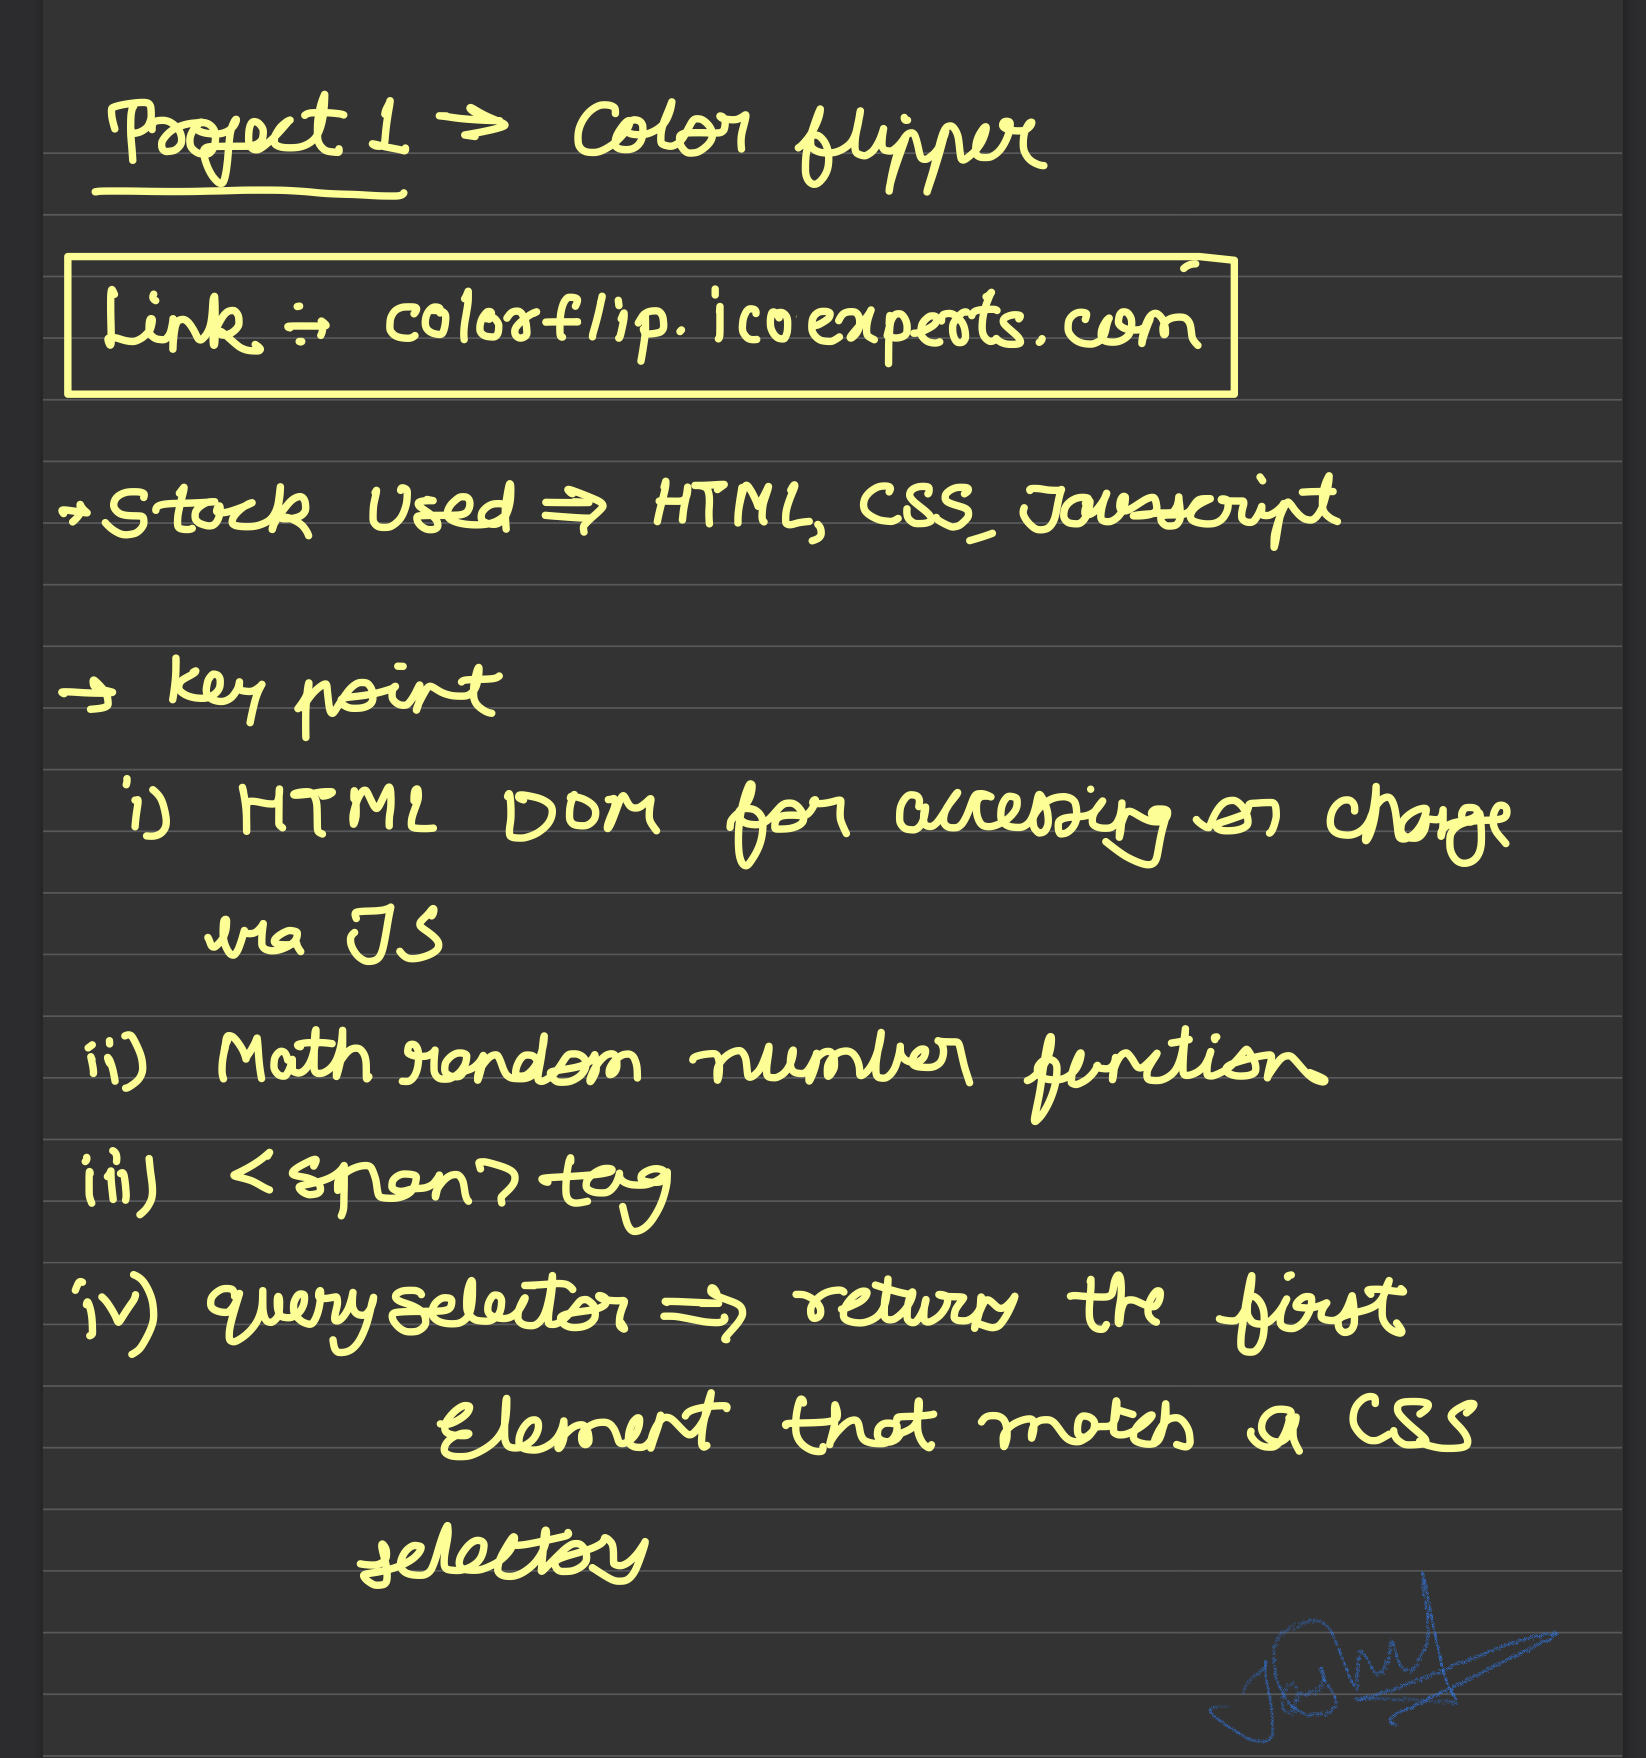 Project 1 → Color flipper
Link ÷→ colorflip.icoexperts.com
→ Stack Used ⇒ HTML, CSS, Javascript
→ key point
i) HTML DOM for accessing or change
via JS
ii) Math random number function
iii) <span> tag
iv) queryselector ⇒ returns the first
Element that match a CSS
selectors